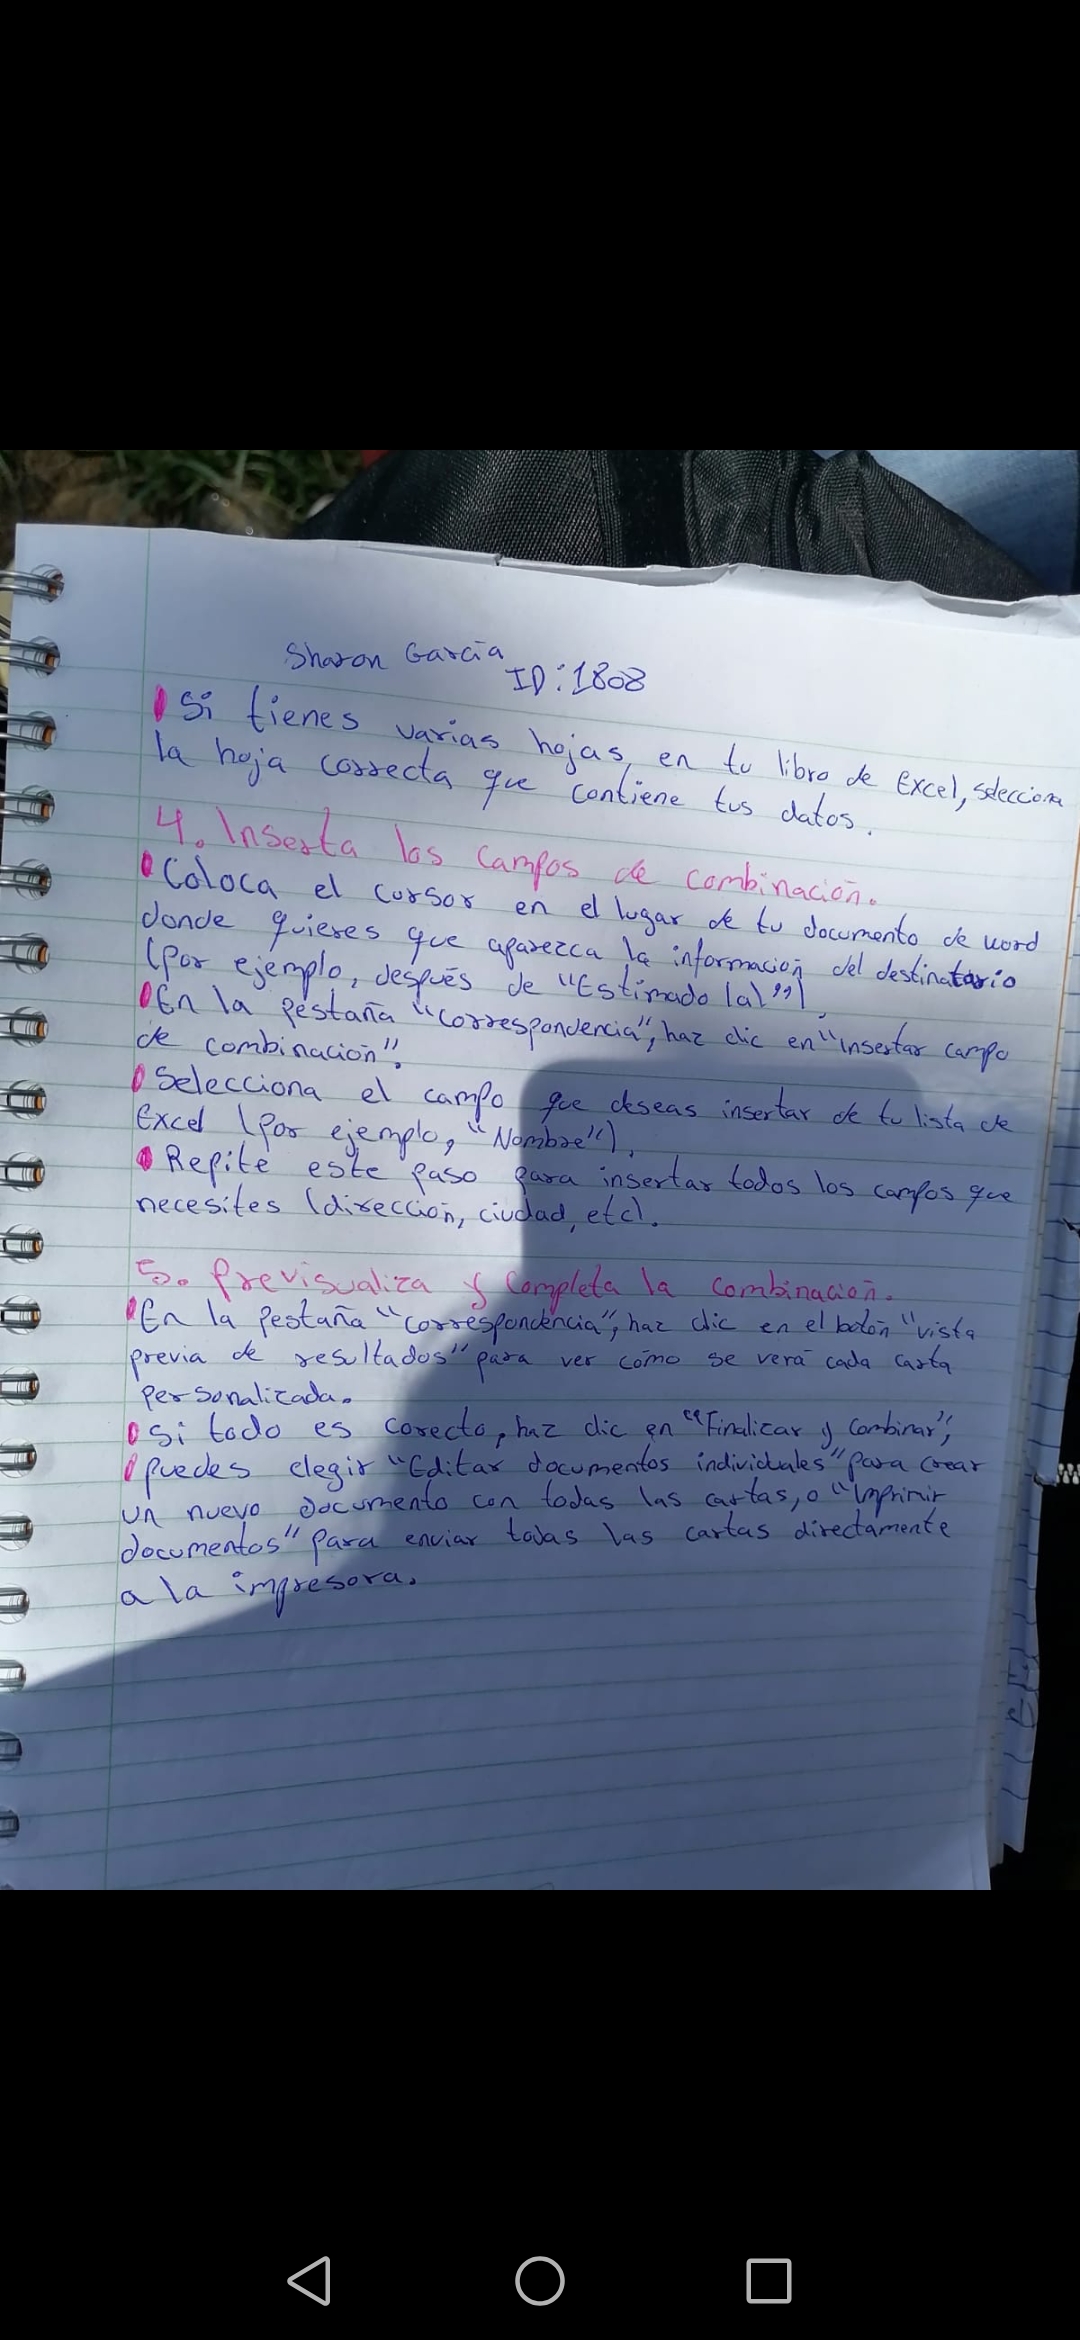 Sharon García
ID: 1808
Si tienes varias hojas en tu libro de Excel, selecciona
la hoja correcta que contiene tus datos.
4. Inserta los campos de combinación.
Coloca el cursor en el lugar de tu documento de word
donde quieres que aparezca la información del destinatario
(por ejemplo, después de "Estimado (a)")
En la pestaña "correspondencia", haz clic en "insertar campo
de combinación".
Selecciona el campo que deseas insertar de tu lista de
Excel (por ejemplo, "Nombre").
Repite este paso para insertar todos los campos que
necesites (dirección, ciudad, etc).
5. Previsualiza y Completa la combinación.
En la pestaña "correspondencia", haz clic en el botón "vista
previa de resultados" para ver cómo se verá cada carta
personalizada.
si todo es corecto, haz clic en "Finalizar y combinar",
puedes elegir "Editar documentos individuales" para crear
un nuevo documento con todas las cartas, o "Imprimir
documentos" para enviar todas las cartas directamente
a la impresora.